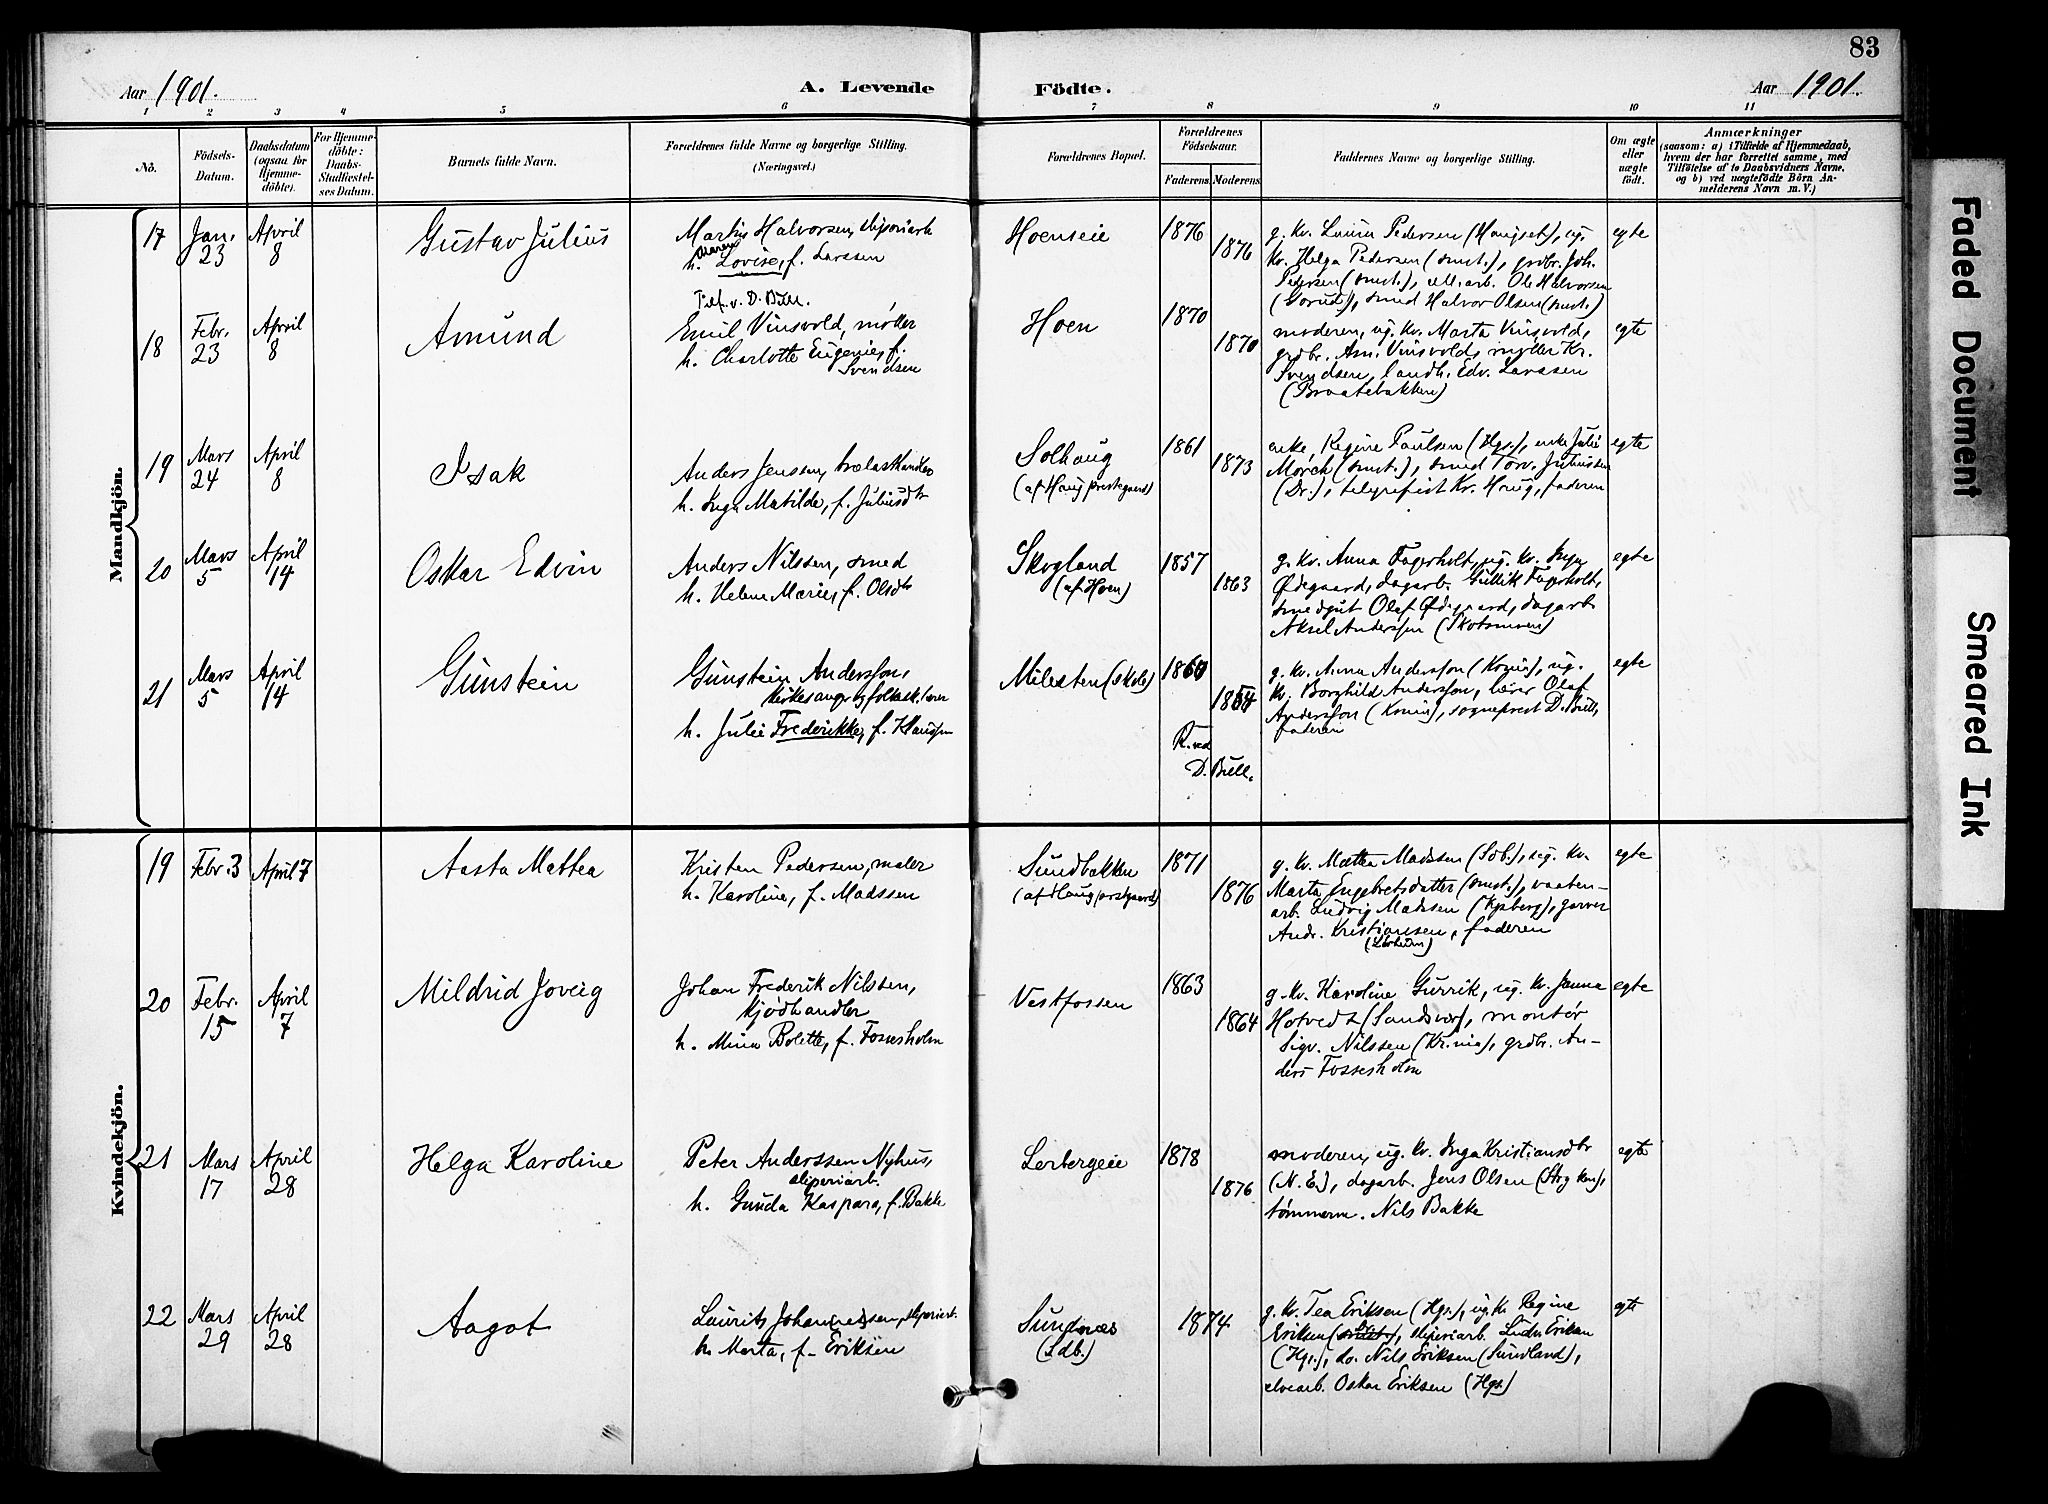 83
Aar 1901.
A. Levende
Födte.
Aar 1901.
1 2 3 4 5 6 7 8 9 10 11
No.
Födsels-
Datum.
Daabsdatum
(ogsaa for
Hjemme-
döbte).
For Hjemme-
döbte:
Daabs-
Stadfæstel-
ses Datum.
Barnets fulde Navn.
Forældrenes fulde Navne og borgerlige Stilling.
(Næringsvei.)
Forældrenes Bopæl.
Forældrenes
Födselsaar.
Faderens. Moderens.
Faddernes Navne og borgerlige Stilling.
Om ægte
eller
uægte
født.
Anmærkninger
(saasom: a) i Tilfælde af Hjemmedaab,
hvem der har forrettet samme, med
Tilföielse af to Daabsvidners Navne,
og b) ved uægtefödte Börn An-
melderens Navn m. V.)
Mandkjön.
17
Jan.
23
April
8
Gustav Julius
Martin Halvorsen, sliperiarb.
h. Maren Lovise, f. Larssen
Hoenseie
1876
1876
g. kv. Laura Pedersen (Haugset), ug.
kv. Helga Pedersen (smst.), grdbr. Joh.
Pedersen (smst.), ell. arb. Ole Halvorsen
(Gorud), smed Halvor Olsen (smst.)
egte
18
Febr.
23
April
8
Amund
D. Bull.
Emil Vinsvold, møller
h. Charlotte Eugenie, f.
Svendsen
Hoen
1870
1870
moderen, ug. kv. Marta Vinsvold,
grdbr. Am. Vinsvold, møller Kr.
Svendsen, landh. Edv. Larssen
(Braatebakken)
egte
19
Mars
24
April
8
Isak
Anders Jenssen, trælasthandler
h. Inga Matilde, f. Juliusdtr
Solhaug
(af Haug prestegaard)
1861
1873
enke, Regine Paulsen (Hgs.), enke Julie
Mørch (smst.), smed Torv. Juliussen
(Dr.), telegrafist Kr. Haug, faderen
egte
20
Mars
5
April
14
Oskar Edvin
Anders Nilssen, smed
h. Helene Marie, f. Olsdtr
Skogland
(af Hoen)
1857
1863
g. kv. Anna Fagerholt, ug. kv. Inga
Ødegaard, dagarb. Gullik Fagerholt,
smedgut Olaf Ødegaard, dagarb.
Aksel Andersson (Skotsmoen)
egte
21
Mars
5
April
14
Gunstein
Gunstein Andersson,
kirkesanger og folkesk. lærer
h. Julie Frederikke, f. Klausen
Milesten (skole)
1860
1864
R. ved
D. Bull.
g. kv. Anna Andersson (Konin), ug.
kv. Borghild Andersson, lærer Olaf
Andersson (Konin), sogneprest D. Bull,
faderen
egte
Kvindekjön.
19
Febr. 3
April 7
Aasta Mattea
Kristen Pedersen, maler
h. Karoline, f. Madssen
Sundbakken
(af Haug prestgaard)
1871
1876
g. kv. Mattea Madssen (Sdb.), ug. kv.
Marta Engebretsdatter (smst.), vaaben-
arb. Ludvig Madssen (Kgsberg), garver
Andr. Kristiansen, faderen
egte
20
Febr.
15
April
7
Mildrid Joveig
Johan Frederik Nilssen,
kjødhandler
h. Mina Bolette, f. Fossesholm
Vestfossen
1863
1864
g. kv. Karoline Gurrik, ug. kv. Janna
Hotvedt (Sandsvær), montør
Sigv. Nilssen (Kr.nia), grdbr. An-
ders Fossesholm
egte
21
Mars
17
April
28
Helga Karoline
Peter Anderssen Nyhus,
sliperiarb.
h. Gunda Kaspara, f. Bakke
Lerbergeie
1878
1876
moderen, ug. kv. Inga Kristiansdtr
(N. E.), dagarb. Jens Olsen
tømmerm. Nils Bakke
egte
22
Mars
29
April
28
Aagot
Laurits Johannessen, sliperiarb.
h. Marta, f. Eriksen
Sundnæs
(Sdb.)
1874
g. kv. Tea Eriksen (Hgs.), ug. kv. Regine
Eriksen, sliperiarb. Ludv. Eriksen
(Hgs.), do. Nils Eriksen (Sundland),
elvearb. Oskar Eriksen (Hgs.)
egte
Faded Document
Smeared Ink